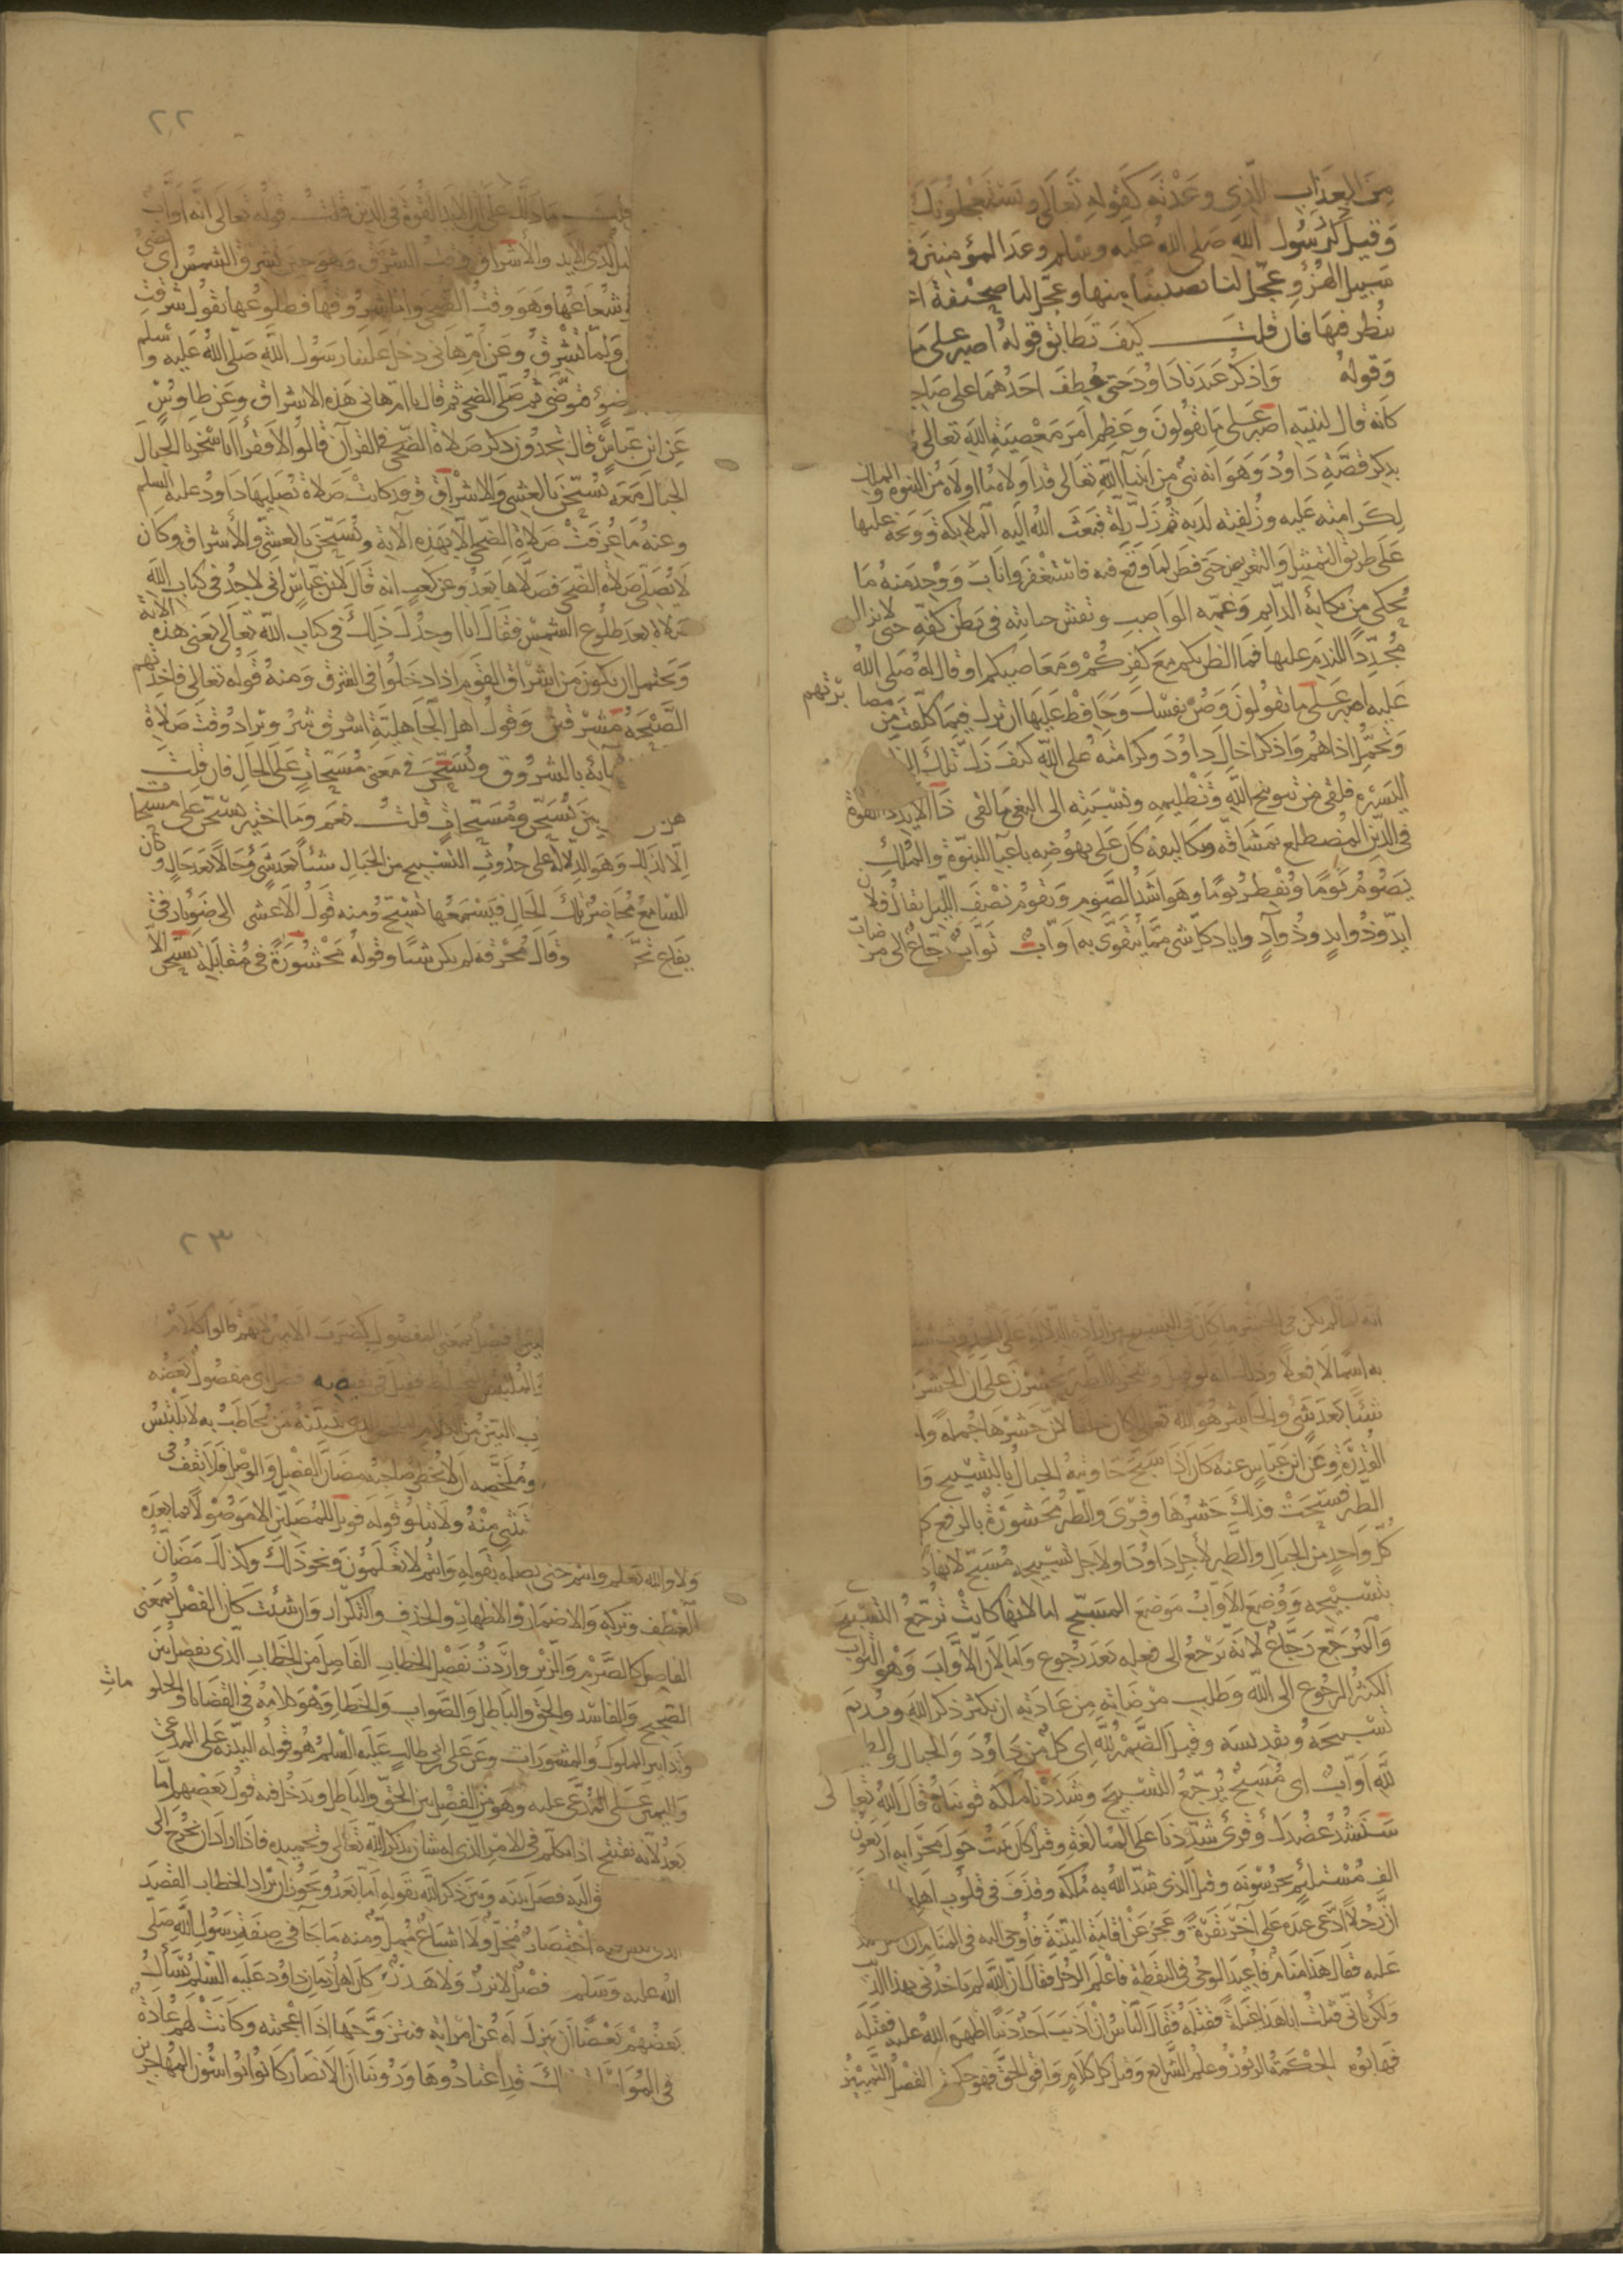 من العذاب الذي وعدته كقوله تعالى ويستعجلونك
وقيل ذكر رسول الله صلى الله عليه وسلم وعد المؤمنين
سبيل الهزؤ عجل لنا نصيبنا منها وعجل لنا صحيفة
ننظر فيها فان قلت كيف تطابق قوله اصبر على ما
وقوله واذكر عبدنا داود حتى عطف احدهما على صاحبه
كانه قال لنبيه اصبر على ما يقولون وعظم امر معصية الله تعالى
بذكر قصة داود وهو انه نبي من انبيا الله تعالى قد اولاه ما اولاه من النبوة والملك
لكرامته عليه وزلفته لديه ثم زل زلة فبعث الله اليه الملايكة ووبخه عليها
على طريق التمثيل والتعريض حتى فطن لما وقع فيه فاستغفر واناب ووجد منه ما
يحكى من بكائه الدايم وغمه الواصب ونقش جنايته في بطن كفه حتى لا يزال
مجددا للندم عليها فما الظن بكم مع كفركم ومعاصيكم او قال له صلى الله
عليه اصبر على ما يقولون وصن نفسك وحافظ عليها ان تزل فيما كلفت من مصابرتهم
وتحمل اذاهم واذكر اخاك داود وكرامته على الله كيف زل تلك الزلة
اليسيرة فلقي من توبيخ الله وتظليمه ونسبته الى البغي ما لقي ذا الايد ذا القوة
في الدين المضطلع بمشاقه وتكاليفه كان على نهوضه باعبا النبوة والملك
يصوم يوما ويفطر يوما وهو اشد الصوم ويقوم نصف الليل يقال فلان
ايد وذو ايد وذو آد واياد كل شي مما يتقوى به اواب تواب رجاع الى مرضات
٢٢
قلت ما دلك على ان الايد القوة في الدين قلت قوله تعالى انه اواب
لذي الايد والاشراق وقت الشرق وهو حين تشرق الشمس اي تضيء
شعاعها وهو وقت الضحى واما شروقها فطلوعها تقول شرقت
ولما تشرق وعن ام هاني دخل علينا رسول الله صلى الله عليه وسلم
وضوء فتوضى ثم صلى الضحى ثم قال يا ام هاني هذه الاشراق وعن طاوس
عن ابن عباس قال تجدون ذكر صلاة الضحى في القرآن قالوا لا فقرأ انا سخرنا الجبال
الجبال معه يسبحن بالعشي والاشراق وقد كانت صلاة يصليها داود عليه السلم
وعنه ما عرفت صلاة الضحى الا بهذه الآية يسبحن بالعشي والاشراق وكان
لا يصلي صلاة الضحى فصلاها بعد وعن كعب انه قال لابن عباس اني لا اجد في كتاب الله
صلاة بعد طلوع الشمس فقال انا اوجدك ذلك في كتاب الله تعالى يعني هذه الآية
ويحتمل ان يكون من اشراق القوم اذا دخلوا في الشرق ومنه قوله تعالى فاخذتهم
الصيحة مشرقين وقول اهل الجاهلية اشرق ثبير ويراد وقت صلاة
بالشروق ويسبحن في معنى مسبحات على الحال فان قلت
هل بين يسبحن ومسبحات قلت نعم وما اختير يسبحن على مسبحات
الا لذلك وهو الدلالة على حدوث التسبيح من الجبال شيئا بعد شي وحالا بعد حال وكان
السامع محاضر تلك الحال فيسمعها تسبح ومنه قول الاعشى الى ضوء نار في
يفاع تحرق وقال محرقة لم يكن شيئا وقوله محشورة في مقابلة يسبحن الا
انه لما لم يكن في الحشر ما كان في التسبيح من ارادة الدلالة على الحدوث شيئا
به اسما لا فعلا وذلك انه لو قيل وسخرنا الطير يحشرن على ان الحشر
شيئا بعد شي والحاشر هو الله تعالى لكان خلفا لان حشرها جملة وا
القدرة وعن ابن عباس عنه كان اذا سبح جاوبته الجبال بالتسبيح وا
الطير فسبحت فذلك حشرها وقرئ والطير محشورة بالرفع كل
كل واحد من الجبال والطير لاجل داود اولاجل تسبيحه مسبح لانها
بتسبيحه ووضع الاواب موضع المسبح اما لانها كانت ترجع التسبيح
والمرجع رجاع لانه يرجع الى فعله بعد رجوع واما لان الاواب وهو التواب
الكثير الرجوع الى الله وطلب مرضاته من عادته ان يكثر ذكر الله ويديم
تسبيحه وتقديسه وقيل الضمير لله اي كل من داود والجبال والطير
لله اواب اي مسبح يرجع التسبيح وشددنا ملكه قويناه قال الله تعالى
سنشد عضدك وقرئ شددنا على المبالغة وقيل كان يبيت حول محرابه اربعون
الف مستلئم يحرسونه وقيل الذي شد الله به ملكه وقذف في قلوب
ان رجلا ادعى عنده على آخر بقرة وعجز عن اقامة البينة فاوحى اليه في المنام ان
عليه فقال هذا منام فاعيد الوحي في اليقظة فاعلم الرجل فقال ان الله لم ياخذني بهذا الذنب
ولكن باني قتلت ابا هذا غيلة فقتله فقال الناس ان اذنب احد ذنبا اظهره الله عليه فقتله
فهابوه الحكمة الزبور وعلم الشرايع وقيل كل كلام وافق الحق فهو حكمة الفصل التمييز
٢٣
فصل بمعنى المفصول كضرب الامير لانهم قالوا كلام
فصل اي مفصول بعضه
البين من الكلام الذي يتبينه من يخاطب به لا يلتبس
وملخصه ان لا يخطي صاحبه مضان الفصل والوصل فلا يقف في
منه ولا يتلو قوله فويل للمصلين الا موصولا بما بعده
ولا والله يعلم وانتم حتى يصله بقوله وانتم لا تعلمون ونحو ذلك وكذلك مضان
العطف وتركه والاضمار والاظهار والحذف والتكرار وان شئت كان الفصل بمعنى
الفاصل كالصوم والزور واردت بفصل الخطاب الفاصل من الخطاب الذي يفصل بين
الصحيح والفاسد والحق والباطل والصواب والخطا وهو كلامه في القضايا والحكومات
وتدابير الملوك والمشورات وعن علي ابن ابي طالب عليه السلم هو قوله البينة على المدعي
واليمين على المدعى عليه وهو من الفصل بين الحق والباطل ويدخل فيه قول بعضهم اما
بعد لانه يفتتح اذا تكلم في الامر الذي له شان بذكر الله تعالى وتحميده فاذا اراد ان يخرج الى
اليه فصل بينه وبين ذكر الله بقوله اما بعد ويجوز ان يراد الخطاب القصد
الذي ليس فيه اختصار مخل ولا اشباع ممل ومنه ما جا في صفة رسول الله صلى
الله عليه وسلم فصل لا نزر ولا هذر كان اهل زمان داود عليه السلم يسأل
بعضهم بعضا ان ينزل له عن امراته فيتزوجها اذا اعجبته وكانت لهم عادة
في المواساة بذلك قد اعتادوها وروينا ان الانصار كانوا يواسون المهاجرين